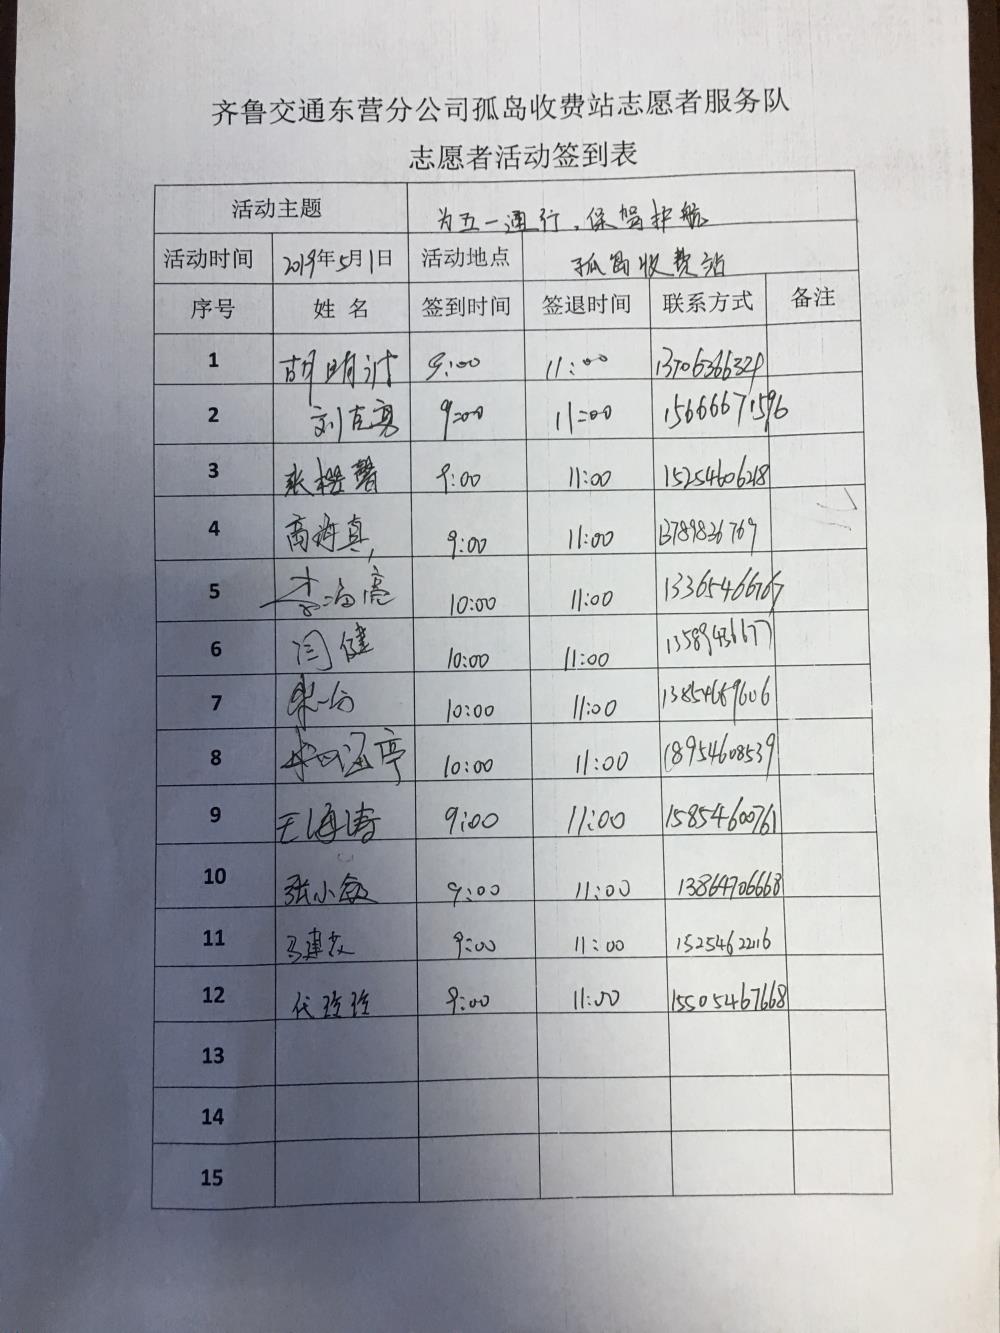 齐鲁交通东营分公司孤岛收费站志愿者服务队
志愿者活动签到表
活动主题 为五一通行，保驾护航
活动时间 2019年5月1日 活动地点 孤岛收费站
序号 姓名 签到时间 签退时间 联系方式 备注
1 9:00 11:00
2 刘克勇 9:00 11:00 15666671596
3 9:00 11:00 15254606218
4 高海真 9:00 11:00 13789836769
5 李海亮 10:00 11:00 13365466767
6 闫健 10:00 11:00 13589436677
7 10:00 11:00 13854689606
8 10:00 11:00 18954608539
9 王海涛 9:00 11:00 15854600761
10 张小敏 9:00 11:00 13864706668
11 9:00 11:00
12 代玲玲 9:00 11:00 15505467668
13
14
15